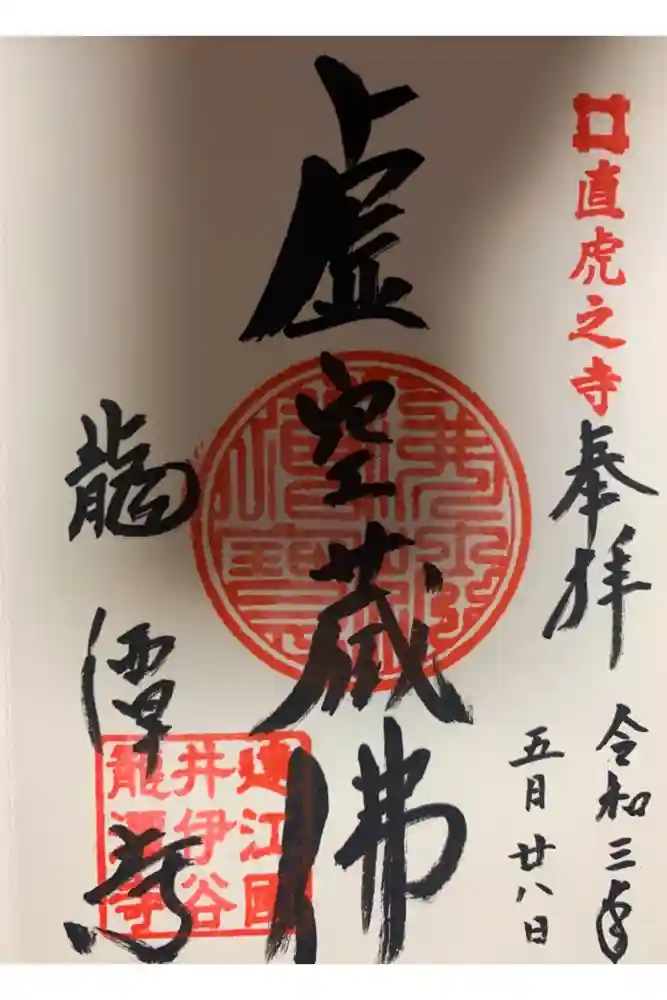 直虎之寺
奉拝
令和三年
五月廿八日
虚空蔵佛
龍潭寺
遠江國
井伊谷
龍潭寺